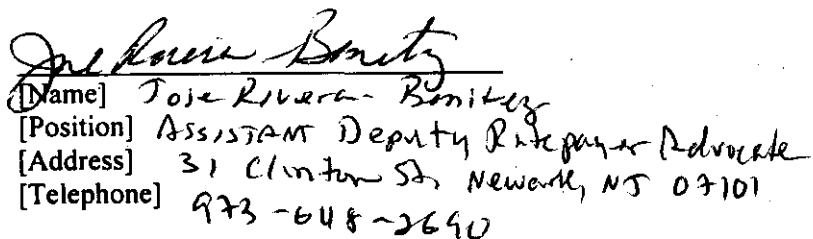 Jose Rivera Benitez
[Name] Jose Rivera-Benitez
[Position] Assistant Deputy Ratepayer Advocate
[Address] 31 Clinton St, Newark, NJ 07101
[Telephone] 973-648-2690